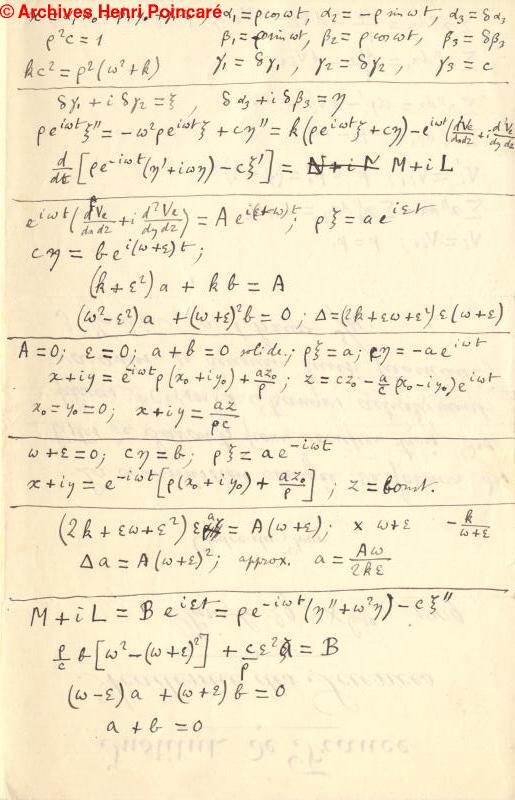 © Archives Henri Poincaré
α₁ = ρ cos ωt, α₂ = -ρ sin ωt, α₃ = δα₃
ρ²c = 1 β₁ = ρ sin ωt, β₂ = ρ cos ωt, β₃ = δβ₃
kc² = ρ²(ω²+k) γ₁ = δγ₁, γ₂ = δγ₂, γ₃ = c
δγ₁ + i δγ₂ = ξ, δα₃ + i δβ₃ = η
ρe^{iωt}ξ'' = -ω²ρe^{iωt}ξ + cη'' = k(ρe^{iωt}ξ + cη) - e^{iωt}(d²Ve/dxdz + i d²Ve/dydz)
d/dt [ρe^{-iωt}(η' + iωη) - cξ'] = M + iL
e^{iωt}(d²Ve/dxdz + i d²Ve/dydz) = A e^{i(ε+ω)t}; ρξ = a e^{iεt}
cη = b e^{i(ω+ε)t};
(k+ε²)a + kb = A
(ω²-ε²)a + (ω+ε)²b = 0; Δ = (2k+εω+ε²)ε(ω+ε)
A = 0; ε = 0; a + b = 0 solide; ρξ = a; cη = -ae^{iωt}
x+iy = e^{iωt}ρ(x₀+iy₀) + az₀/ρ; z = cz₀ - a/c (x₀-iy₀)e^{iωt}
x₀ = y₀ = 0; x+iy = az/ρc
ω+ε = 0; cη = b; ρξ = ae^{-iωt}
x+iy = e^{-iωt}[ρ(x₀+iy₀) + az₀/ρ]; z = const.
(2k+εω+ε²)εa = A(ω+ε); × ω+ε -k/(ω+ε)
Δa = A(ω+ε)²; approx. a = Aω/2kε
M + iL = B e^{iεt} = ρe^{-iωt}(η''+ω²η) - cξ''
ρ/c b[ω²-(ω+ε)²] + c/ρ ε²a = B
(ω-ε)a + (ω+ε)b = 0
a + b = 0
Institut de France